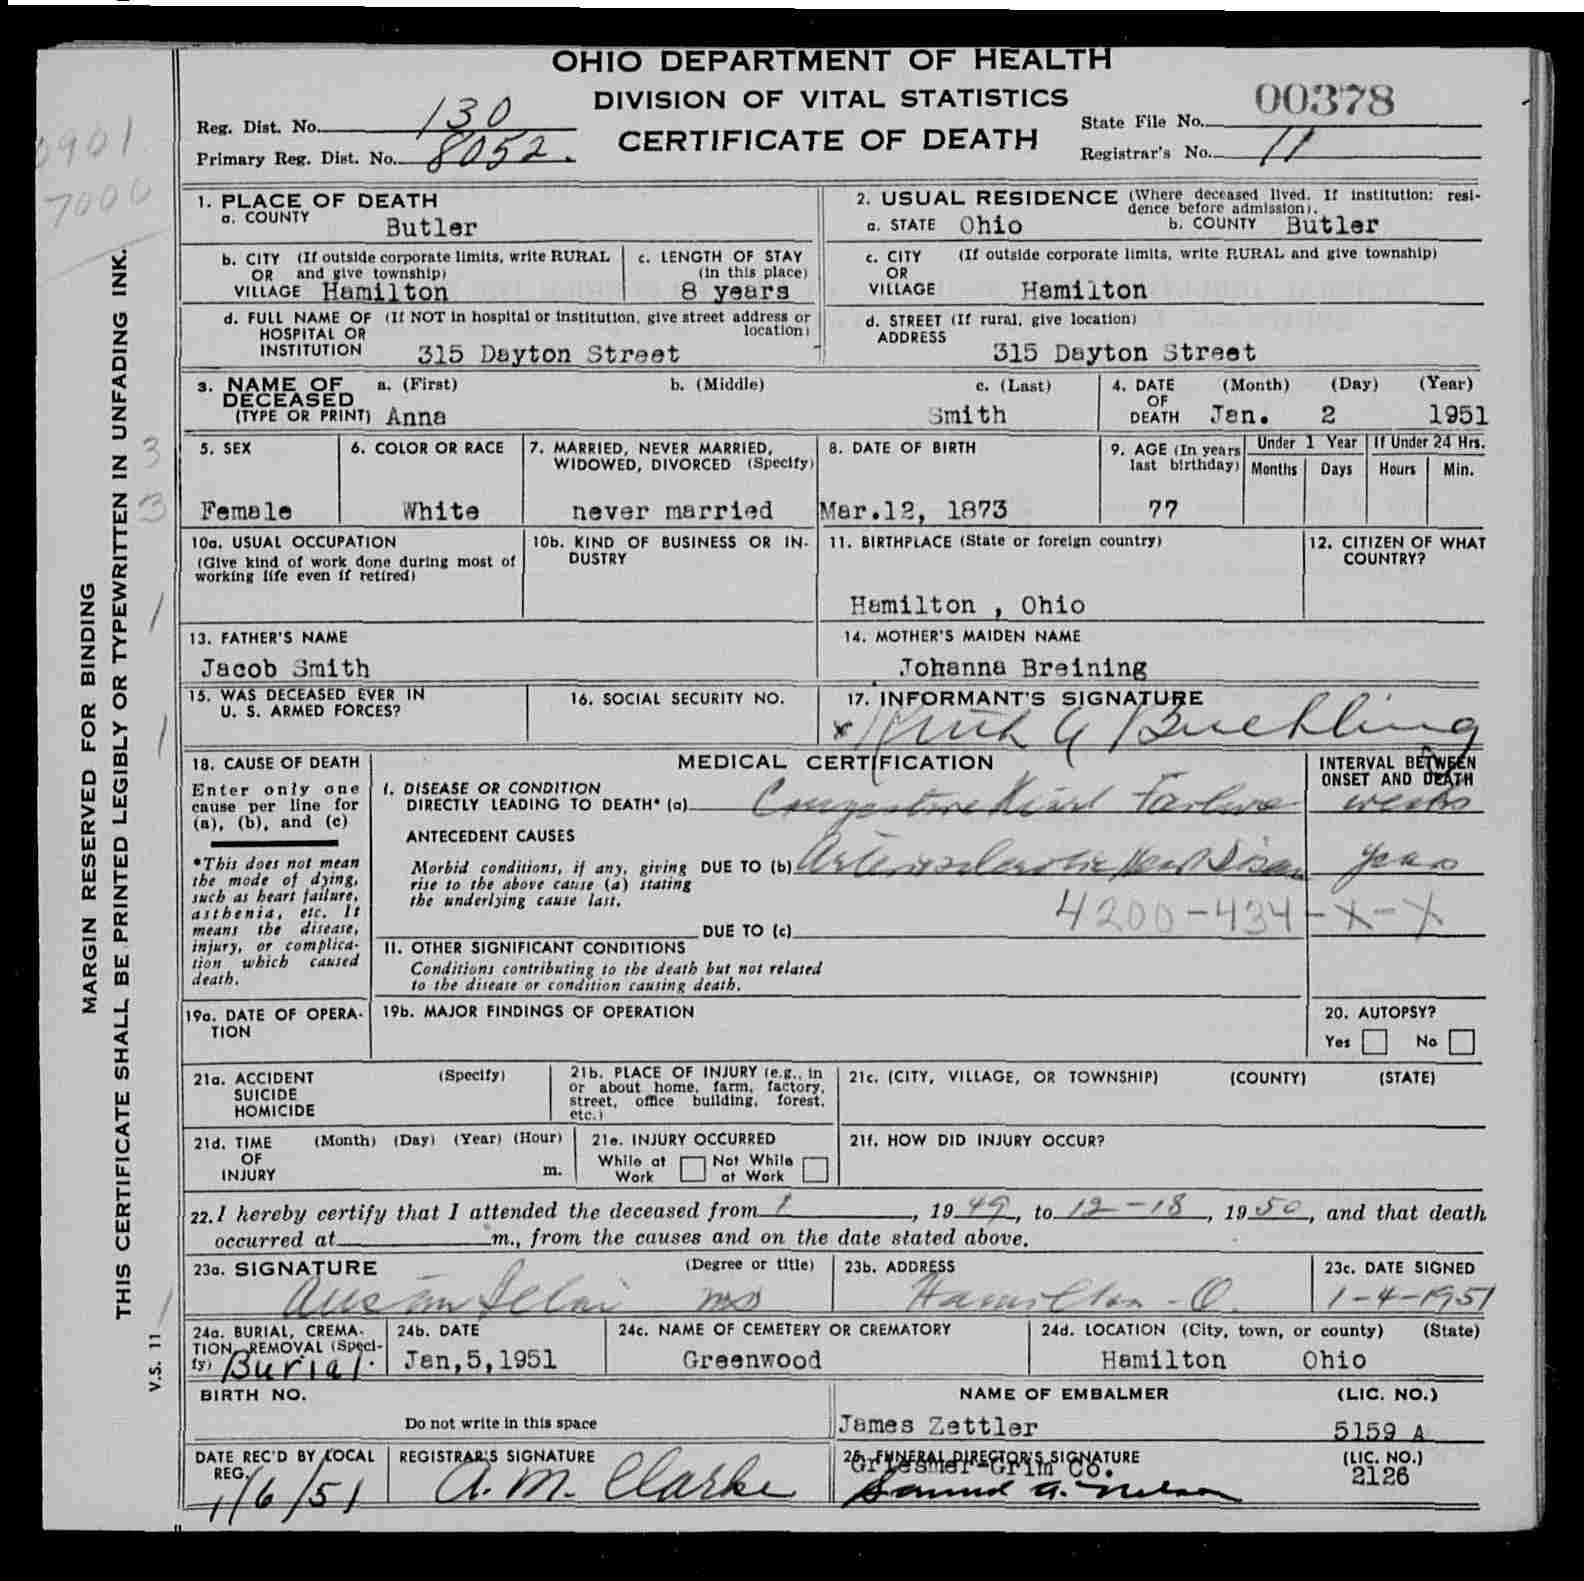 OHIO DEPARTMENT OF HEALTH
DIVISION OF VITAL STATISTICS
CERTIFICATE OF DEATH
Reg. Dist. No. 130
Primary Reg. Dist. No. 8052.
State File No. 00378
Registrar's No. 11
0901
7000
1. PLACE OF DEATH
a. COUNTY Butler
2. USUAL RESIDENCE (Where deceased lived. If institution: resi-
dence before admission).
a. STATE Ohio b. COUNTY Butler
b. CITY (If outside corporate limits, write RURAL
OR and give township)
VILLAGE Hamilton
c. LENGTH OF STAY
(in this place)
8 years
c. CITY (If outside corporate limits, write RURAL and give township)
OR
VILLAGE Hamilton
d. FULL NAME OF (If NOT in hospital or institution, give street address or
HOSPITAL OR location)
INSTITUTION 315 Dayton Street
d. STREET (If rural, give location)
ADDRESS
315 Dayton Street
3. NAME OF a. (First) b. (Middle) c. (Last)
DECEASED
(TYPE OR PRINT) Anna Smith
4. DATE (Month) (Day) (Year)
OF
DEATH Jan. 2 1951
5. SEX
Female
6. COLOR OR RACE
White
7. MARRIED, NEVER MARRIED,
WIDOWED, DIVORCED (Specify)
never married
8. DATE OF BIRTH
Mar.12, 1873
9. AGE (In years
last birthday)
77
Under 1 Year
Months Days
If Under 24 Hrs.
Hours Min.
10a. USUAL OCCUPATION
(Give kind of work done during most of
working life even if retired)
10b. KIND OF BUSINESS OR IN-
DUSTRY
11. BIRTHPLACE (State or foreign country)
Hamilton , Ohio
12. CITIZEN OF WHAT
COUNTRY?
13. FATHER'S NAME
Jacob Smith
14. MOTHER'S MAIDEN NAME
Johanna Breining
15. WAS DECEASED EVER IN
U. S. ARMED FORCES?
16. SOCIAL SECURITY NO.
17. INFORMANT'S SIGNATURE
x Ruth G Buehling
18. CAUSE OF DEATH
Enter only one
cause per line for
(a), (b), and (c)
*This does not mean
the mode of dying,
such as heart failure,
asthenia, etc. It
means the disease,
injury, or complica-
tion which caused
death.
MEDICAL CERTIFICATION
INTERVAL BETWEEN
ONSET AND DEATH
I. DISEASE OR CONDITION
DIRECTLY LEADING TO DEATH* (a) Congestive Heart Failure weeks
ANTECEDENT CAUSES
Morbid conditions, if any, giving
rise to the above cause (a) stating
the underlying cause last.
DUE TO (b) Arteriosclerotic Heart Disease years
4200-434-X-X
DUE TO (c)
II. OTHER SIGNIFICANT CONDITIONS
Conditions contributing to the death but not related
to the disease or condition causing death.
19a. DATE OF OPERA-
TION
19b. MAJOR FINDINGS OF OPERATION
20. AUTOPSY?
Yes No
21a. ACCIDENT (Specify)
SUICIDE
HOMICIDE
21b. PLACE OF INJURY (e.g., in
or about home, farm, factory,
street, office building, forest,
etc.)
21c. (CITY, VILLAGE, OR TOWNSHIP) (COUNTY) (STATE)
21d. TIME (Month) (Day) (Year) (Hour)
OF
INJURY m.
21e. INJURY OCCURRED
While at Not While
Work at Work
21f. HOW DID INJURY OCCUR?
22. I hereby certify that I attended the deceased from 1, 1949, to 12-18, 1950, and that death
occurred at m., from the causes and on the date stated above.
23a. SIGNATURE (Degree or title)
MD
23b. ADDRESS
Hamilton - O.
23c. DATE SIGNED
1-4-1951
24a. BURIAL, CREMA-
TION, REMOVAL (Speci-
fy) Burial.
24b. DATE
Jan,5,1951
24c. NAME OF CEMETERY OR CREMATORY
Greenwood
24d. LOCATION (City, town, or county) (State)
Hamilton Ohio
BIRTH NO.
Do not write in this space
NAME OF EMBALMER (LIC. NO.)
James Zettler 5159 A
DATE REC'D BY LOCAL
REG.
1/6/51
REGISTRAR'S SIGNATURE
A. M. Clarke
25. FUNERAL DIRECTOR'S SIGNATURE (LIC. NO.)
Griesmer-Grim Co. 2126
Samuel A. Nelson
MARGIN RESERVED FOR BINDING
THIS CERTIFICATE SHALL BE PRINTED LEGIBLY OR TYPEWRITTEN IN UNFADING INK.
V.S. 11
3
3
1
1
1